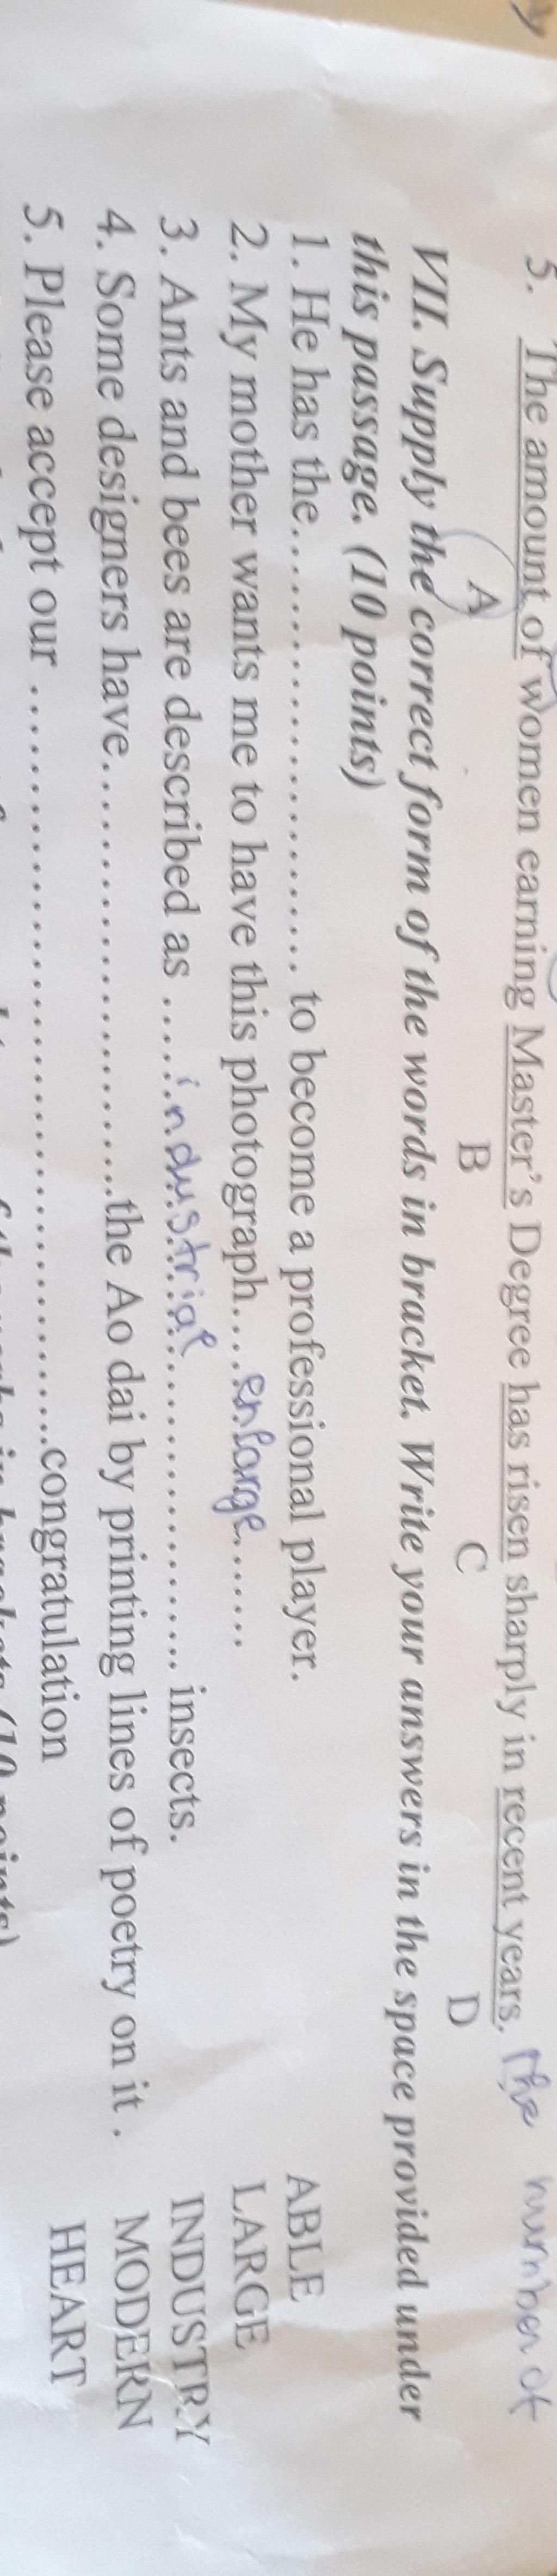 5. The amount of women earning Master's Degree has risen sharply in recent years. The number of
A B C D
VII. Supply the correct form of the words in bracket. Write your answers in the space provided under
this passage. (10 points)
1. He has the.............................. to become a professional player. ABLE
2. My mother wants me to have this photograph....enlarge....... LARGE
3. Ants and bees are described as ......industrial...................... insects. INDUSTRY
4. Some designers have..............................the Ao dai by printing lines of poetry on it . MODERN
5. Please accept our ..................................................congratulation HEART